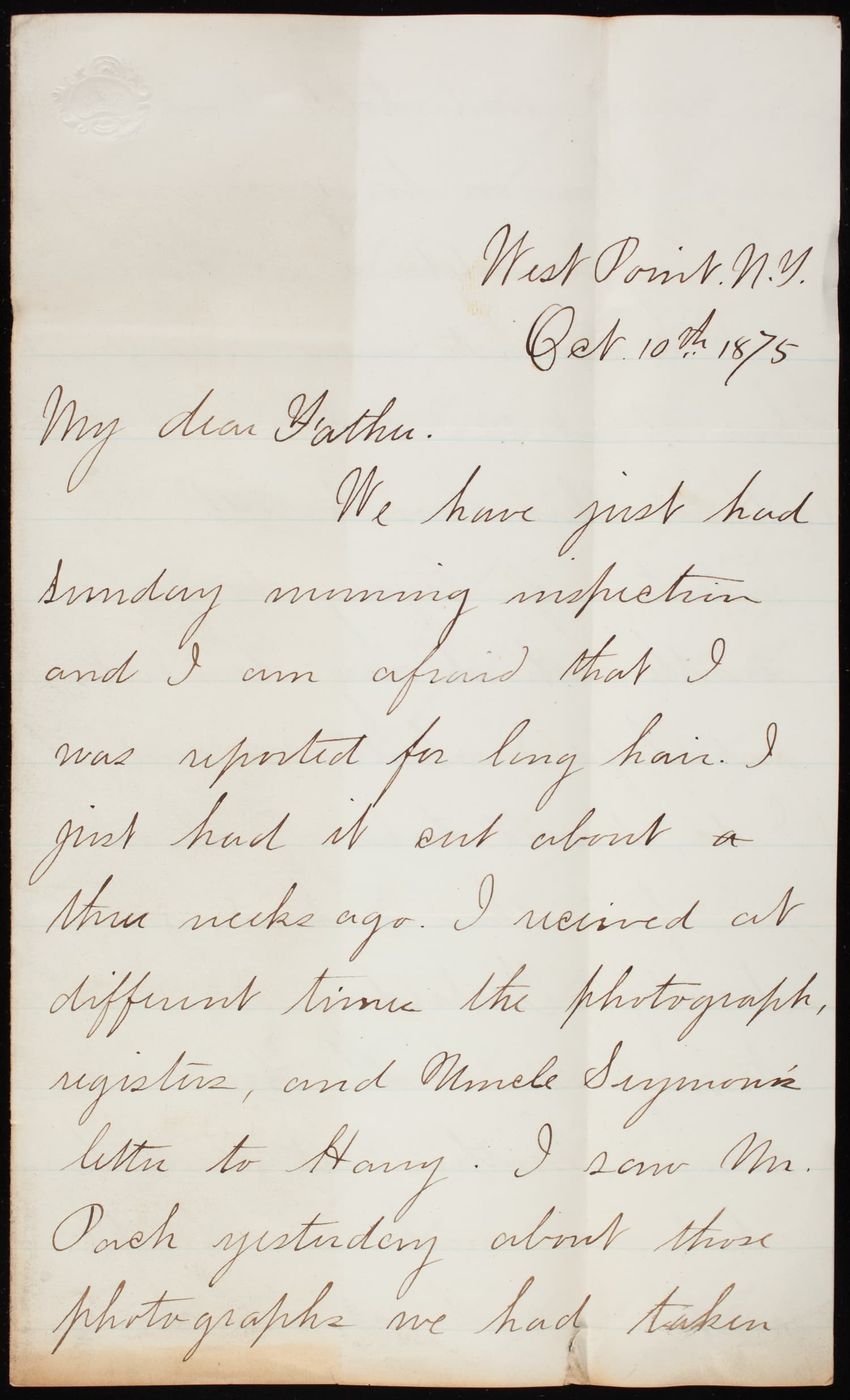 West Point. N.Y.
Oct. 10th 1875
My dear Father.
We have just had
Sunday morning inspection
and I am afraid that I
was reported for long hair. I
just had it cut about a
three weeks ago. I received at
different times the photograph,
registers, and Uncle Seymour's
letter to Harry. I saw Mr.
Pach yesterday about those
photographs we had taken